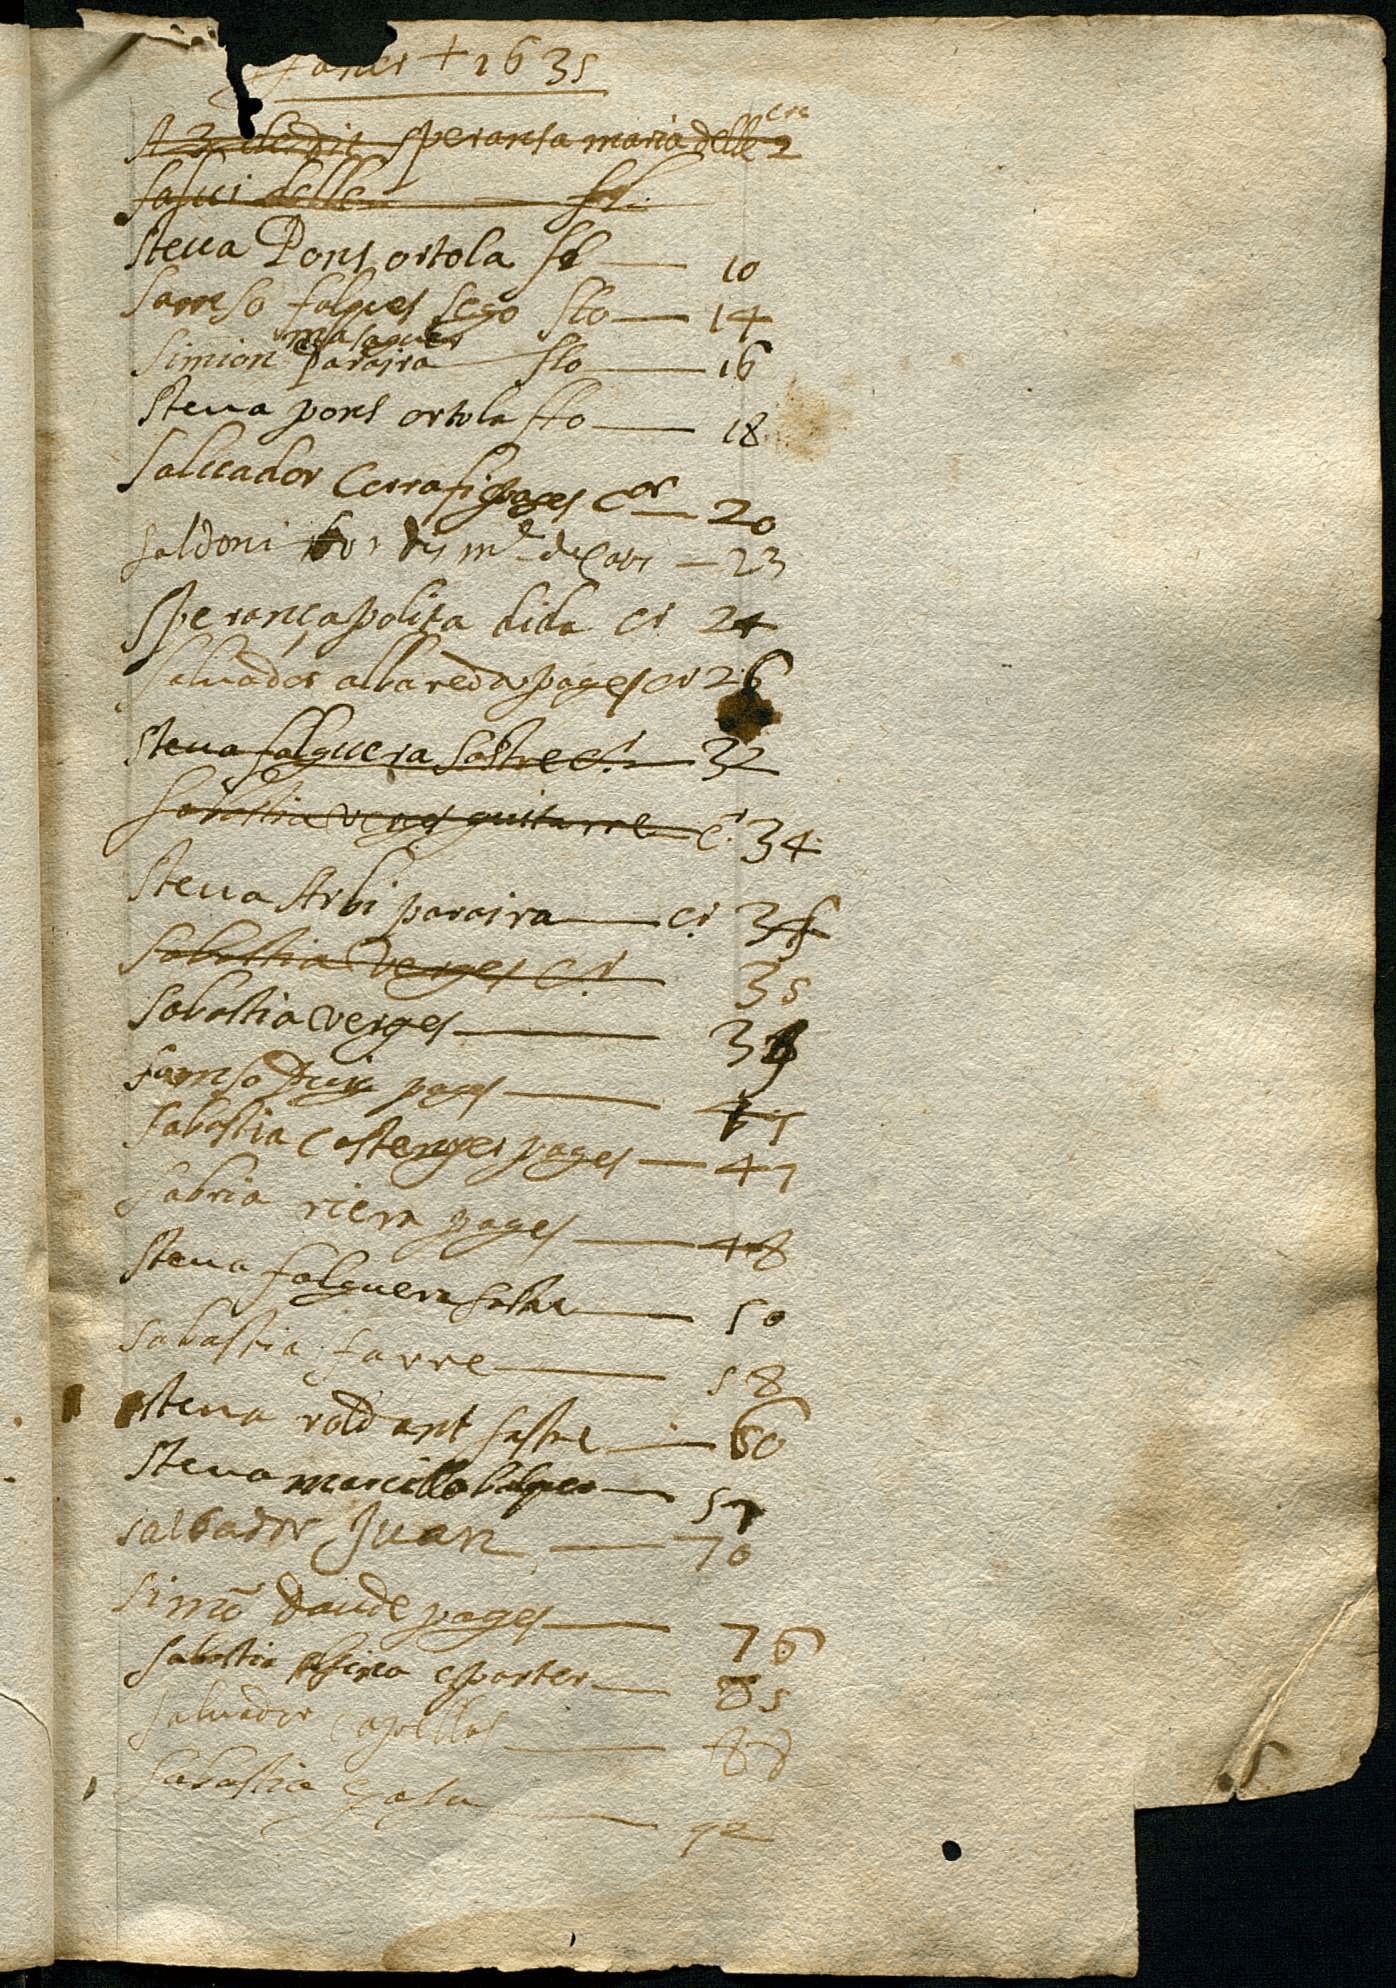 Janer + 1635
speransa maria delle cre 2
salui delle
steua Pons ortola fl 10
sarnso falques sego flo 14
masaguer
simion paraira flo 16
steua pons ortola flo 18
saluador Cerrafi pages cor 20
saldoni 23
sperança polita dida cr 24
saluador albareda pages cr 26
steua falguera sastre cr 32
sabastia verges guitarre cr 34
steua Arbi paraira cr 36
sabastia verges cr 35
sabastia verges
sarnso Puig pages
sabastia costenyer pages 47
sabria riera pages 48
steua falguera sastre 50
sabastia farre 58
steua roldant sastre 60
steua marcillo 57
salbador Juan 70
simō daude pages 76
sabastia esparter 85
saluador capellas 88
sabastia gala 92